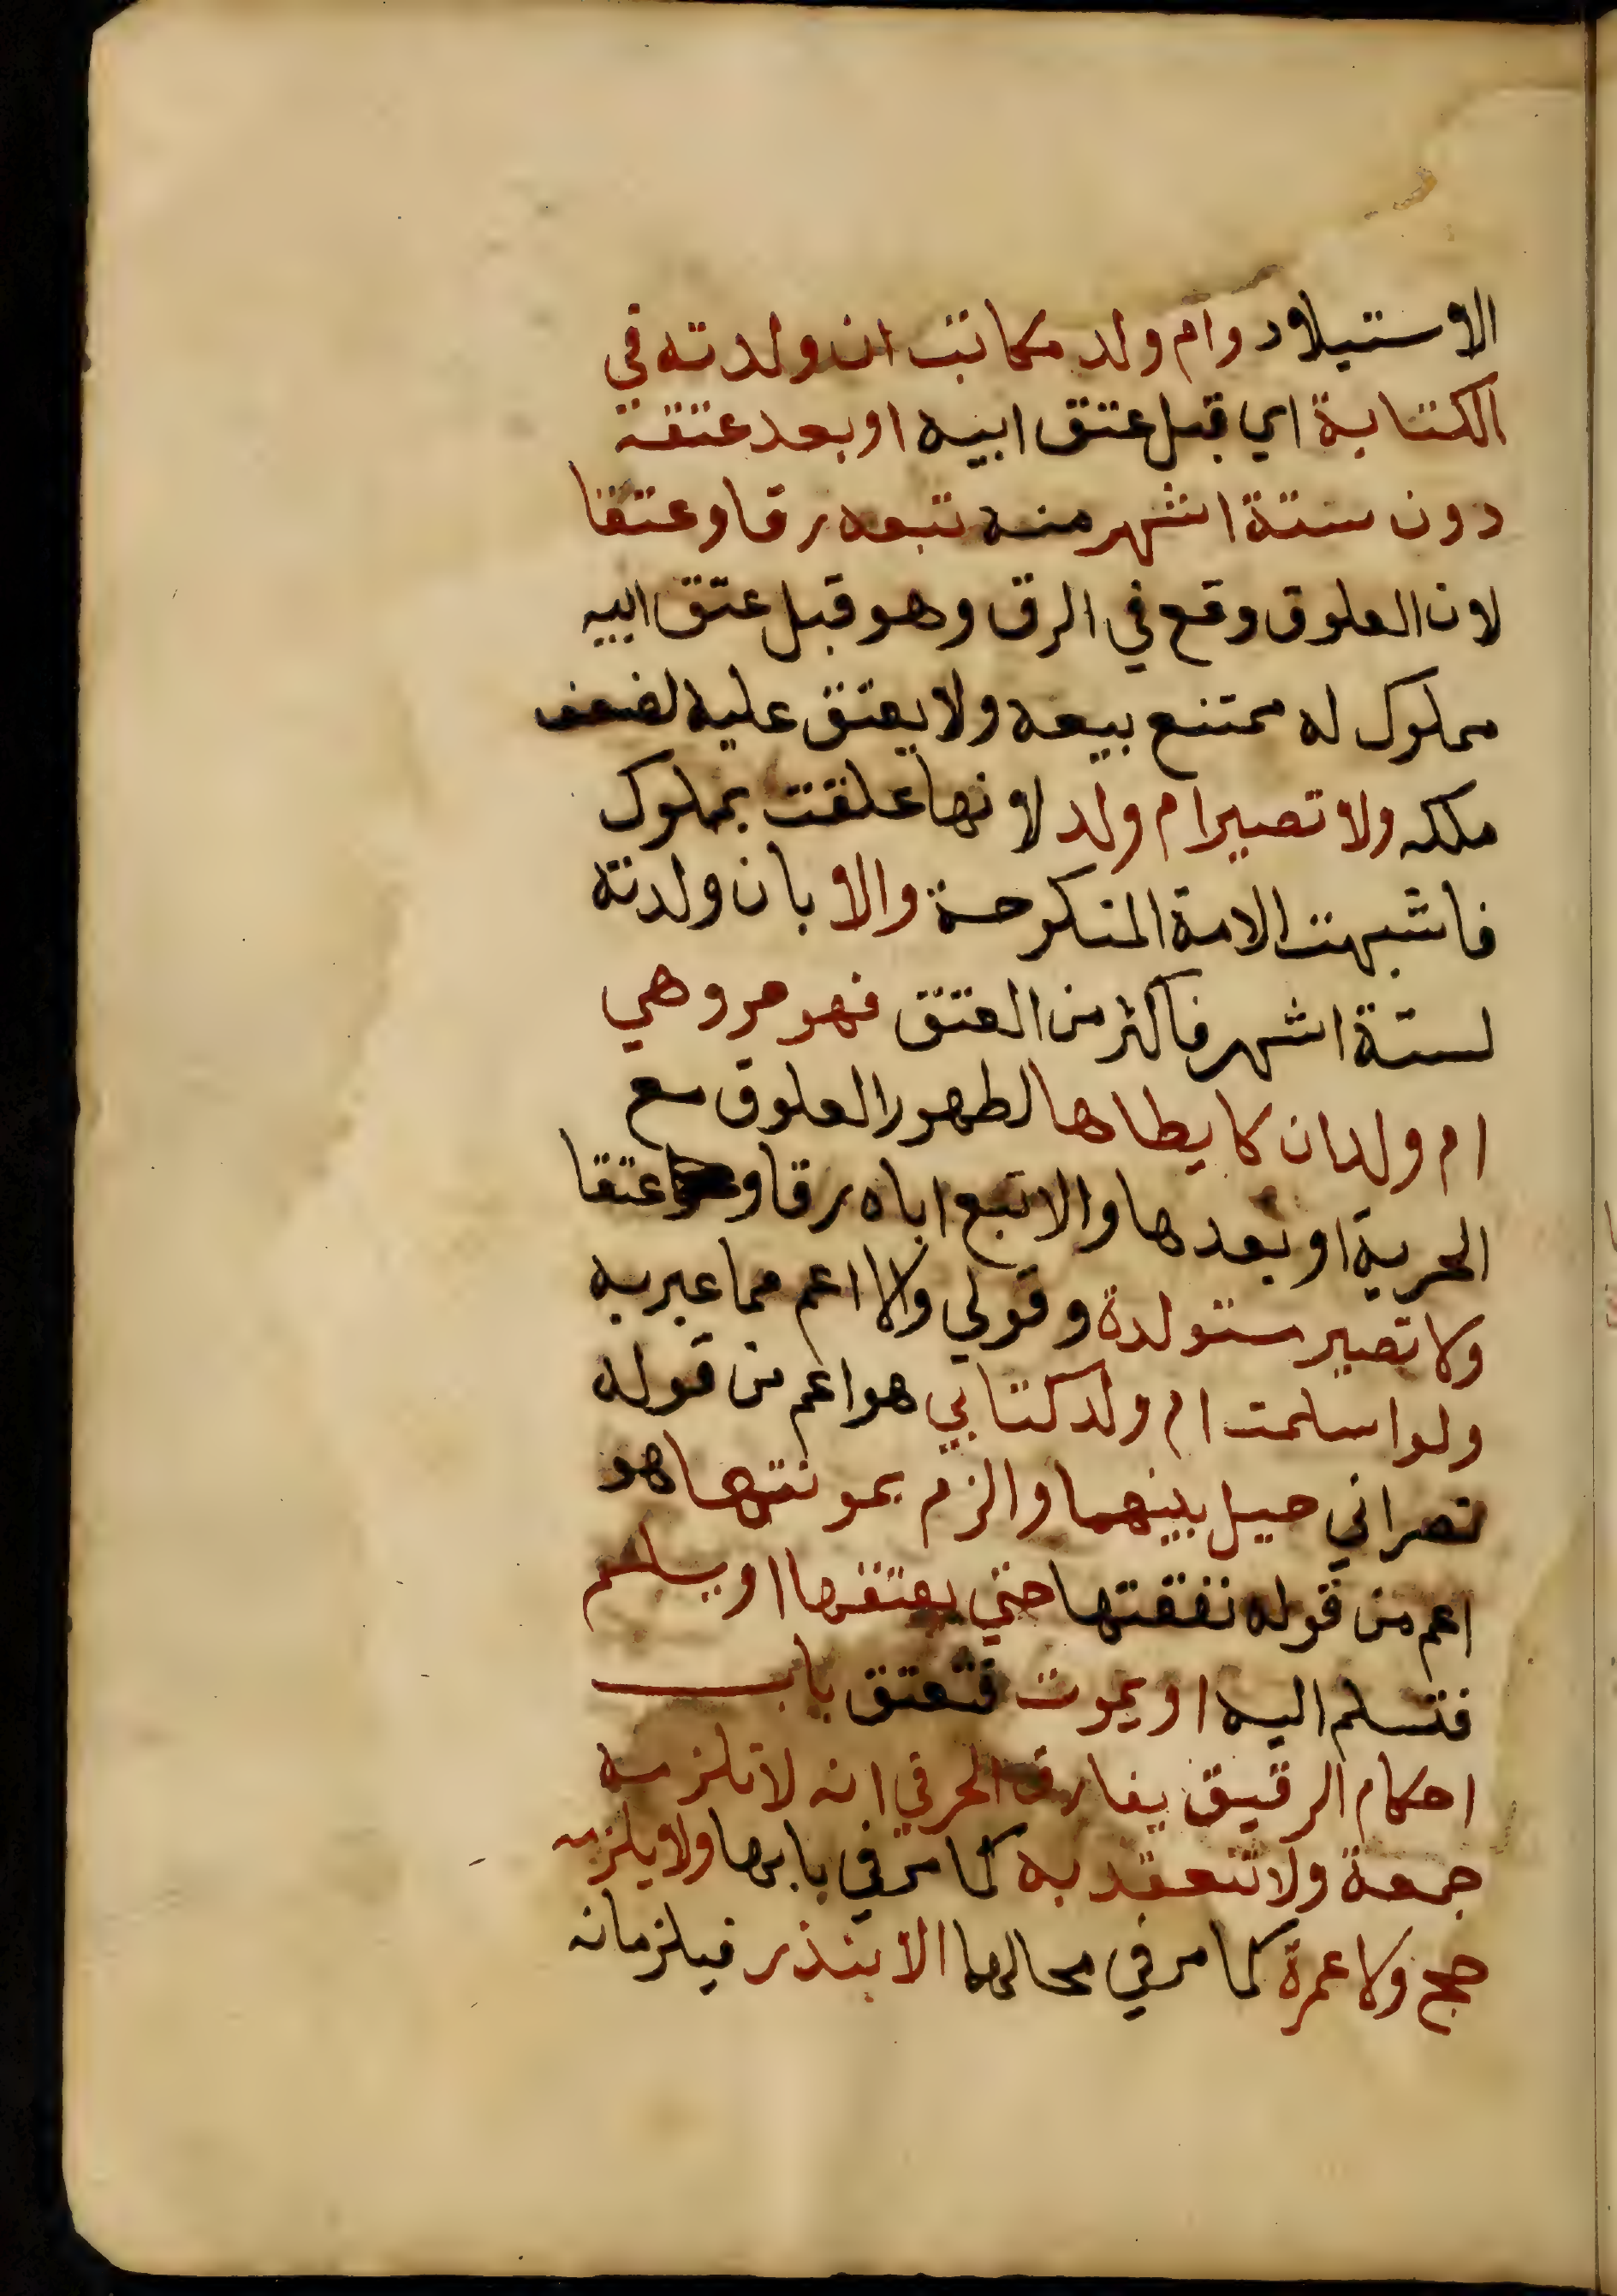 الاستيلاد وام ولد مكاتب ان ولدته في
الكتابة اي قبل عتق ابيه او بعد عتقة
دون ستة اشهر منه تبعه رقا وعتقا
لان العلوق وقع في الرق وهو قبل عتق ابيه
مملوك له ممتنع بيعه ولا يعتق عليه لضعف
ملكه ولا تصير ام ولد لانها علقت بمملوك
فاشبهت الامة المنكوحة والا بان ولدته
لستة اشهر فاكثر من العتق فهو حر وهي
ام ولد ان كا يطاها لظهور العلوق مع
الحرية او بعدها والا تبع اباه رقا وعتقا
ولا تصير مستولدة وقولي والا اعم مما عبر به
ولو اسلمت ام ولد كتابي هو اعم من قوله
نصراني حيل بينهما والزم بمونتها هو
اعم من قوله نفقتها حتي يعتقها او يسلم
فتسلم اليه او يموت فتعتق باب
احكام الرقيق يفارق الحر في انه لا تلزمه
جمعة ولا تنعقد به كما مر في بابها ولا يلزمه
حج ولا عمرة كما مر في محالهما الا بنذر فيلزمانه